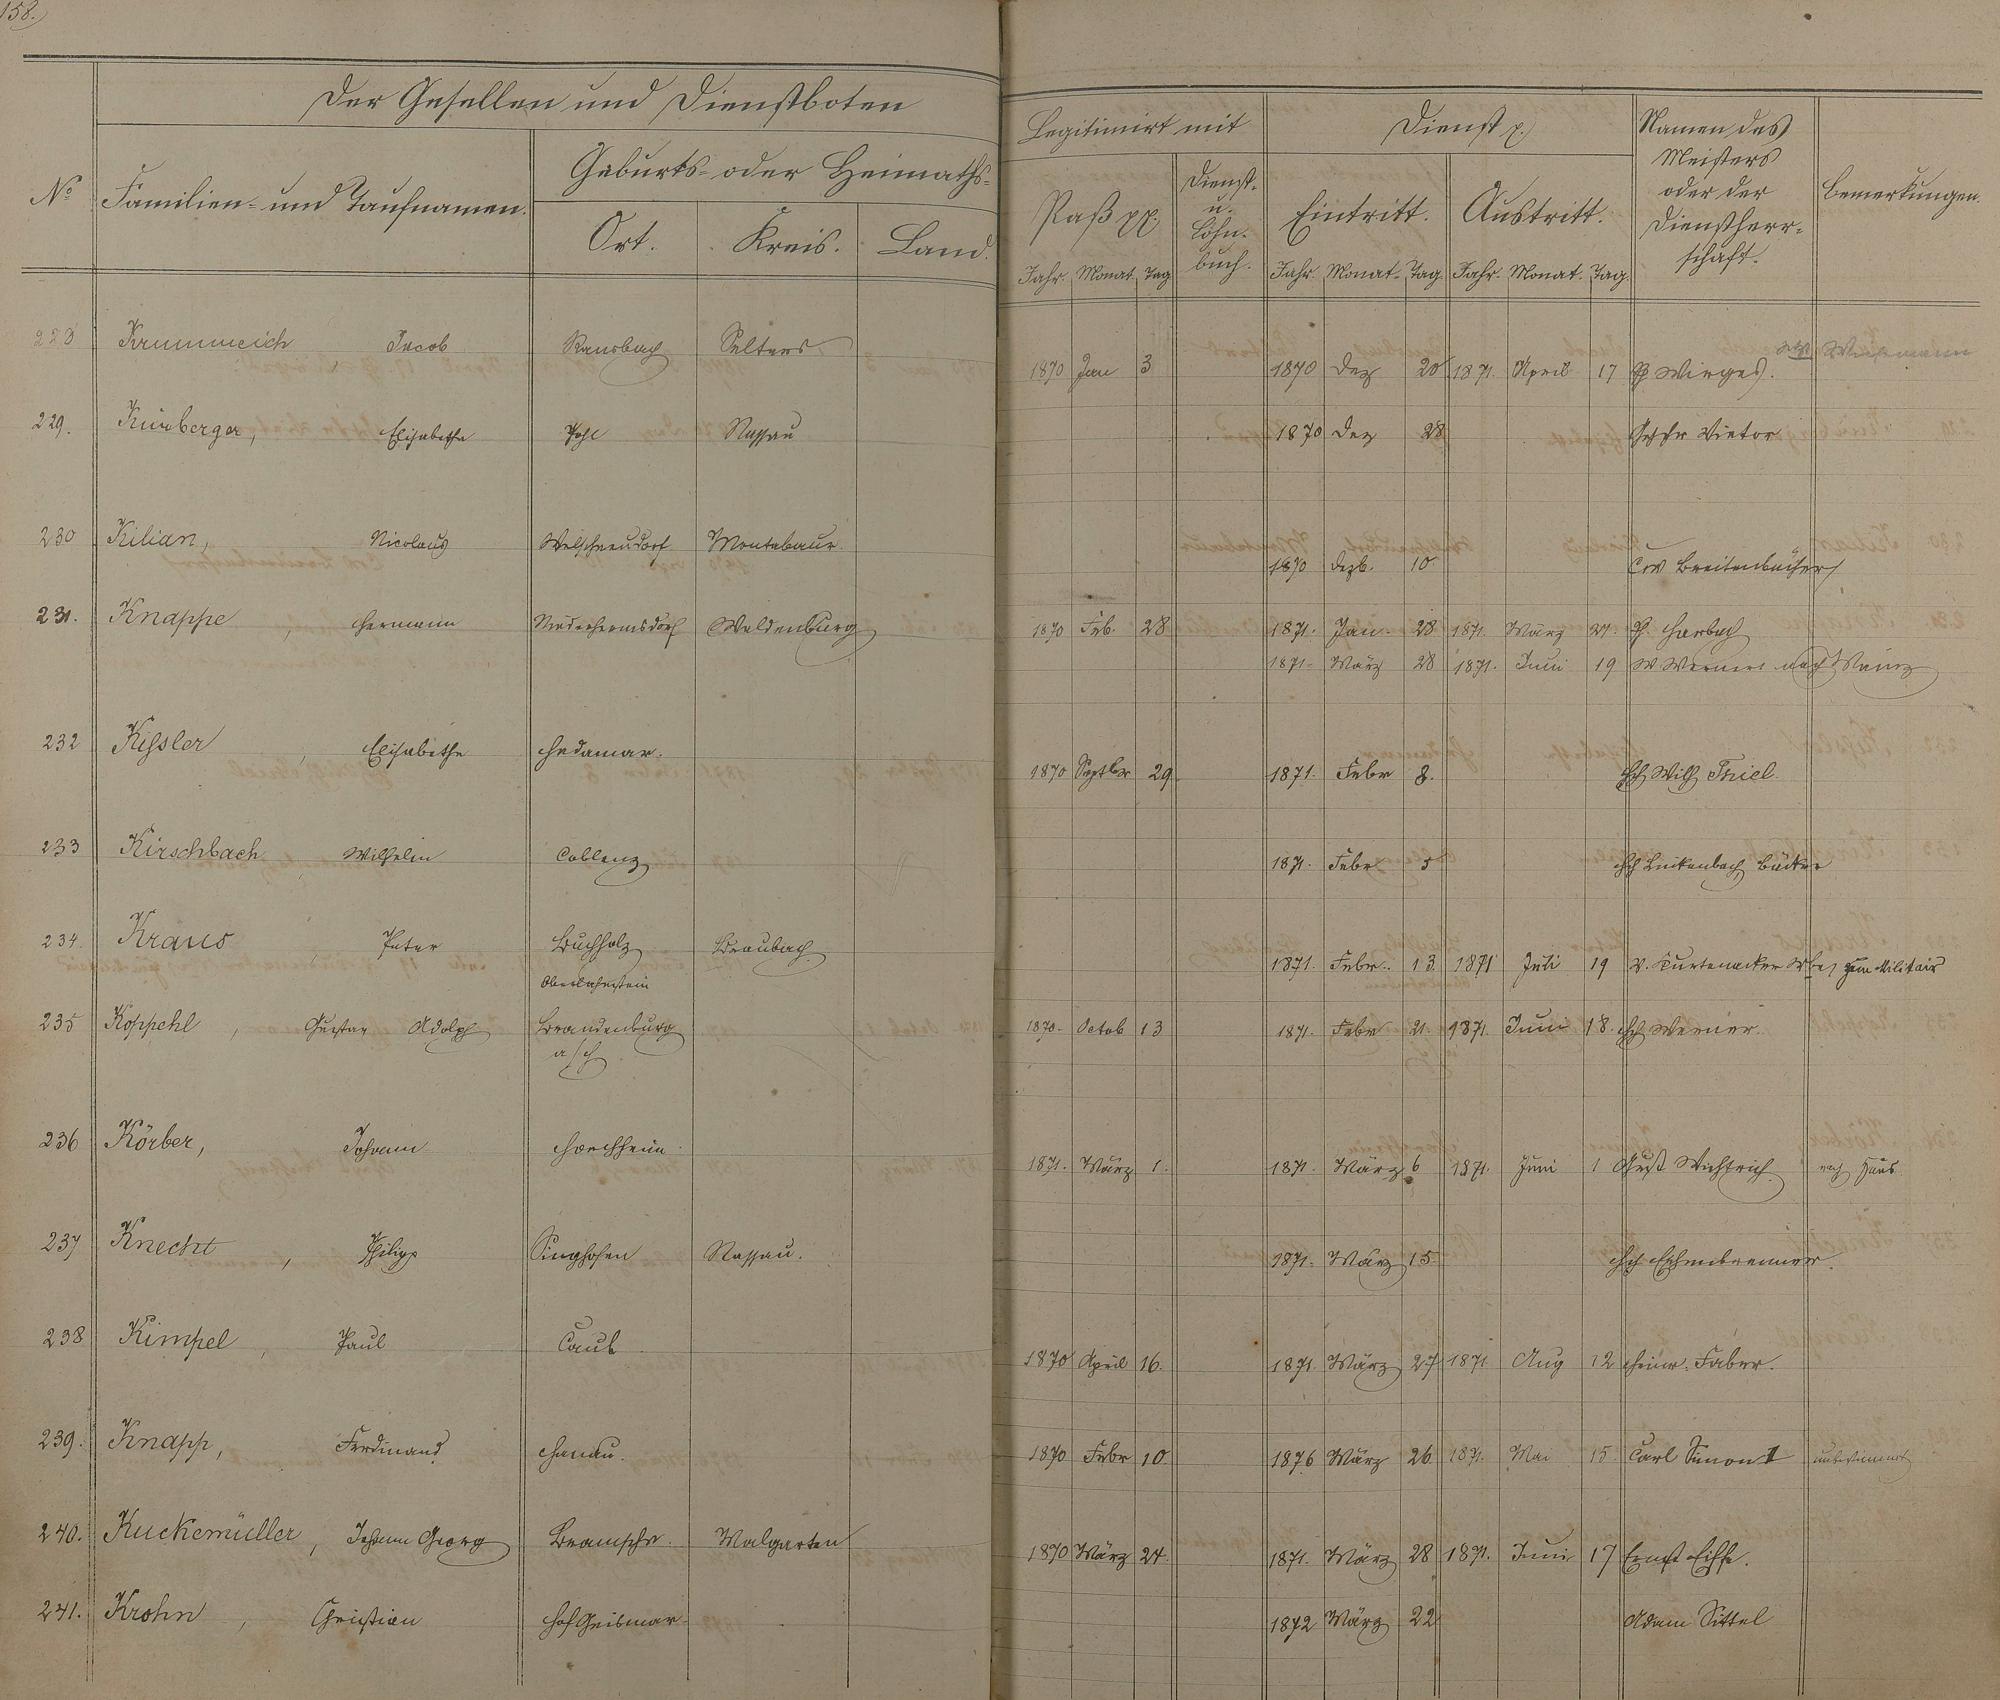 158.
Der Gesellen und Dienstboten
Legitimirt mit
Dienst p.
Namen des
Meisters
oder der
Dienstherr-
schaft.
Bemerkungen.
No
Familien- und Taufnamen.
Geburts- oder Heimaths-
Ort. Kreis. Land.
Paß pp.
Dienst-
u.
Lohn-
buch.
Eintritt. Austritt.
Jahr. Monat. Tag Jahr. Monat. Tag. Jahr. Monat. Tag.
228 Krummeich, Jacob Ransbach Selters 1870 Jan 3 1870 Dez 20 1871. April 17 Wirges.
229. Kürberger, Elisabetha Pohl Nassau 1870 Dez 28 Vietor
230 Kilian, Nicolaus Welschneudorf Montabaur. 1870 Dezb. 10 Breitenbücher
231. Knappe, Hermann Niederhermsdorf Waldenburg 1870 Feb. 28 1871. Jan. 28 1871. März 27. Ph. Harbach
1871. März 28 1871. Juni 19 W Werner nach Mainz
232 Kißler, Elisabethe Hadamar. 1870 Septbr 29 1871. Febr 8. Wilh Thiel
233 Kirschbach, Wilhelm Coblenz 1871. Febr 5 Hch Linkenbach, Bäcker
234. Kraus, Peter Buchholz Braubach 1871. Febr. 13. 1871 Juli 19 Kurtenacker zum Militair
Oberlahnstein
235 Koppehl, Gustav Adolph Brandenburg 1870. Octob 13 1871. Febr 21. 1871. Juni 18. Hch Werner.
a/h
236 Körber, Johann Horchheim 1871. März 1. 1871. März 6 1871. Juni 1 Gust Wichtrich nach Haus
237 Knecht, Philipp Singhofen Nassau. 1871. März 15. Hch Eschenbrenner.
238 Kimpel, Paul Caub 1870 April 16. 1871. März 27 1871 Aug 12 Heinr. Faber.
239. Knapp, Ferdinand Hanau. 1870 Febr 10 1876 März 26. 1871. Mai 15. Carl Simon I unbestimmt
240. Kuckemüller, Johann Georg Bramsche. Malgarten 1870 März 24. 1871. März 28 1871. Juni 17 Ernst
241. Krohn, Christian HofGeismar 1872 März 22 Adam Sittel